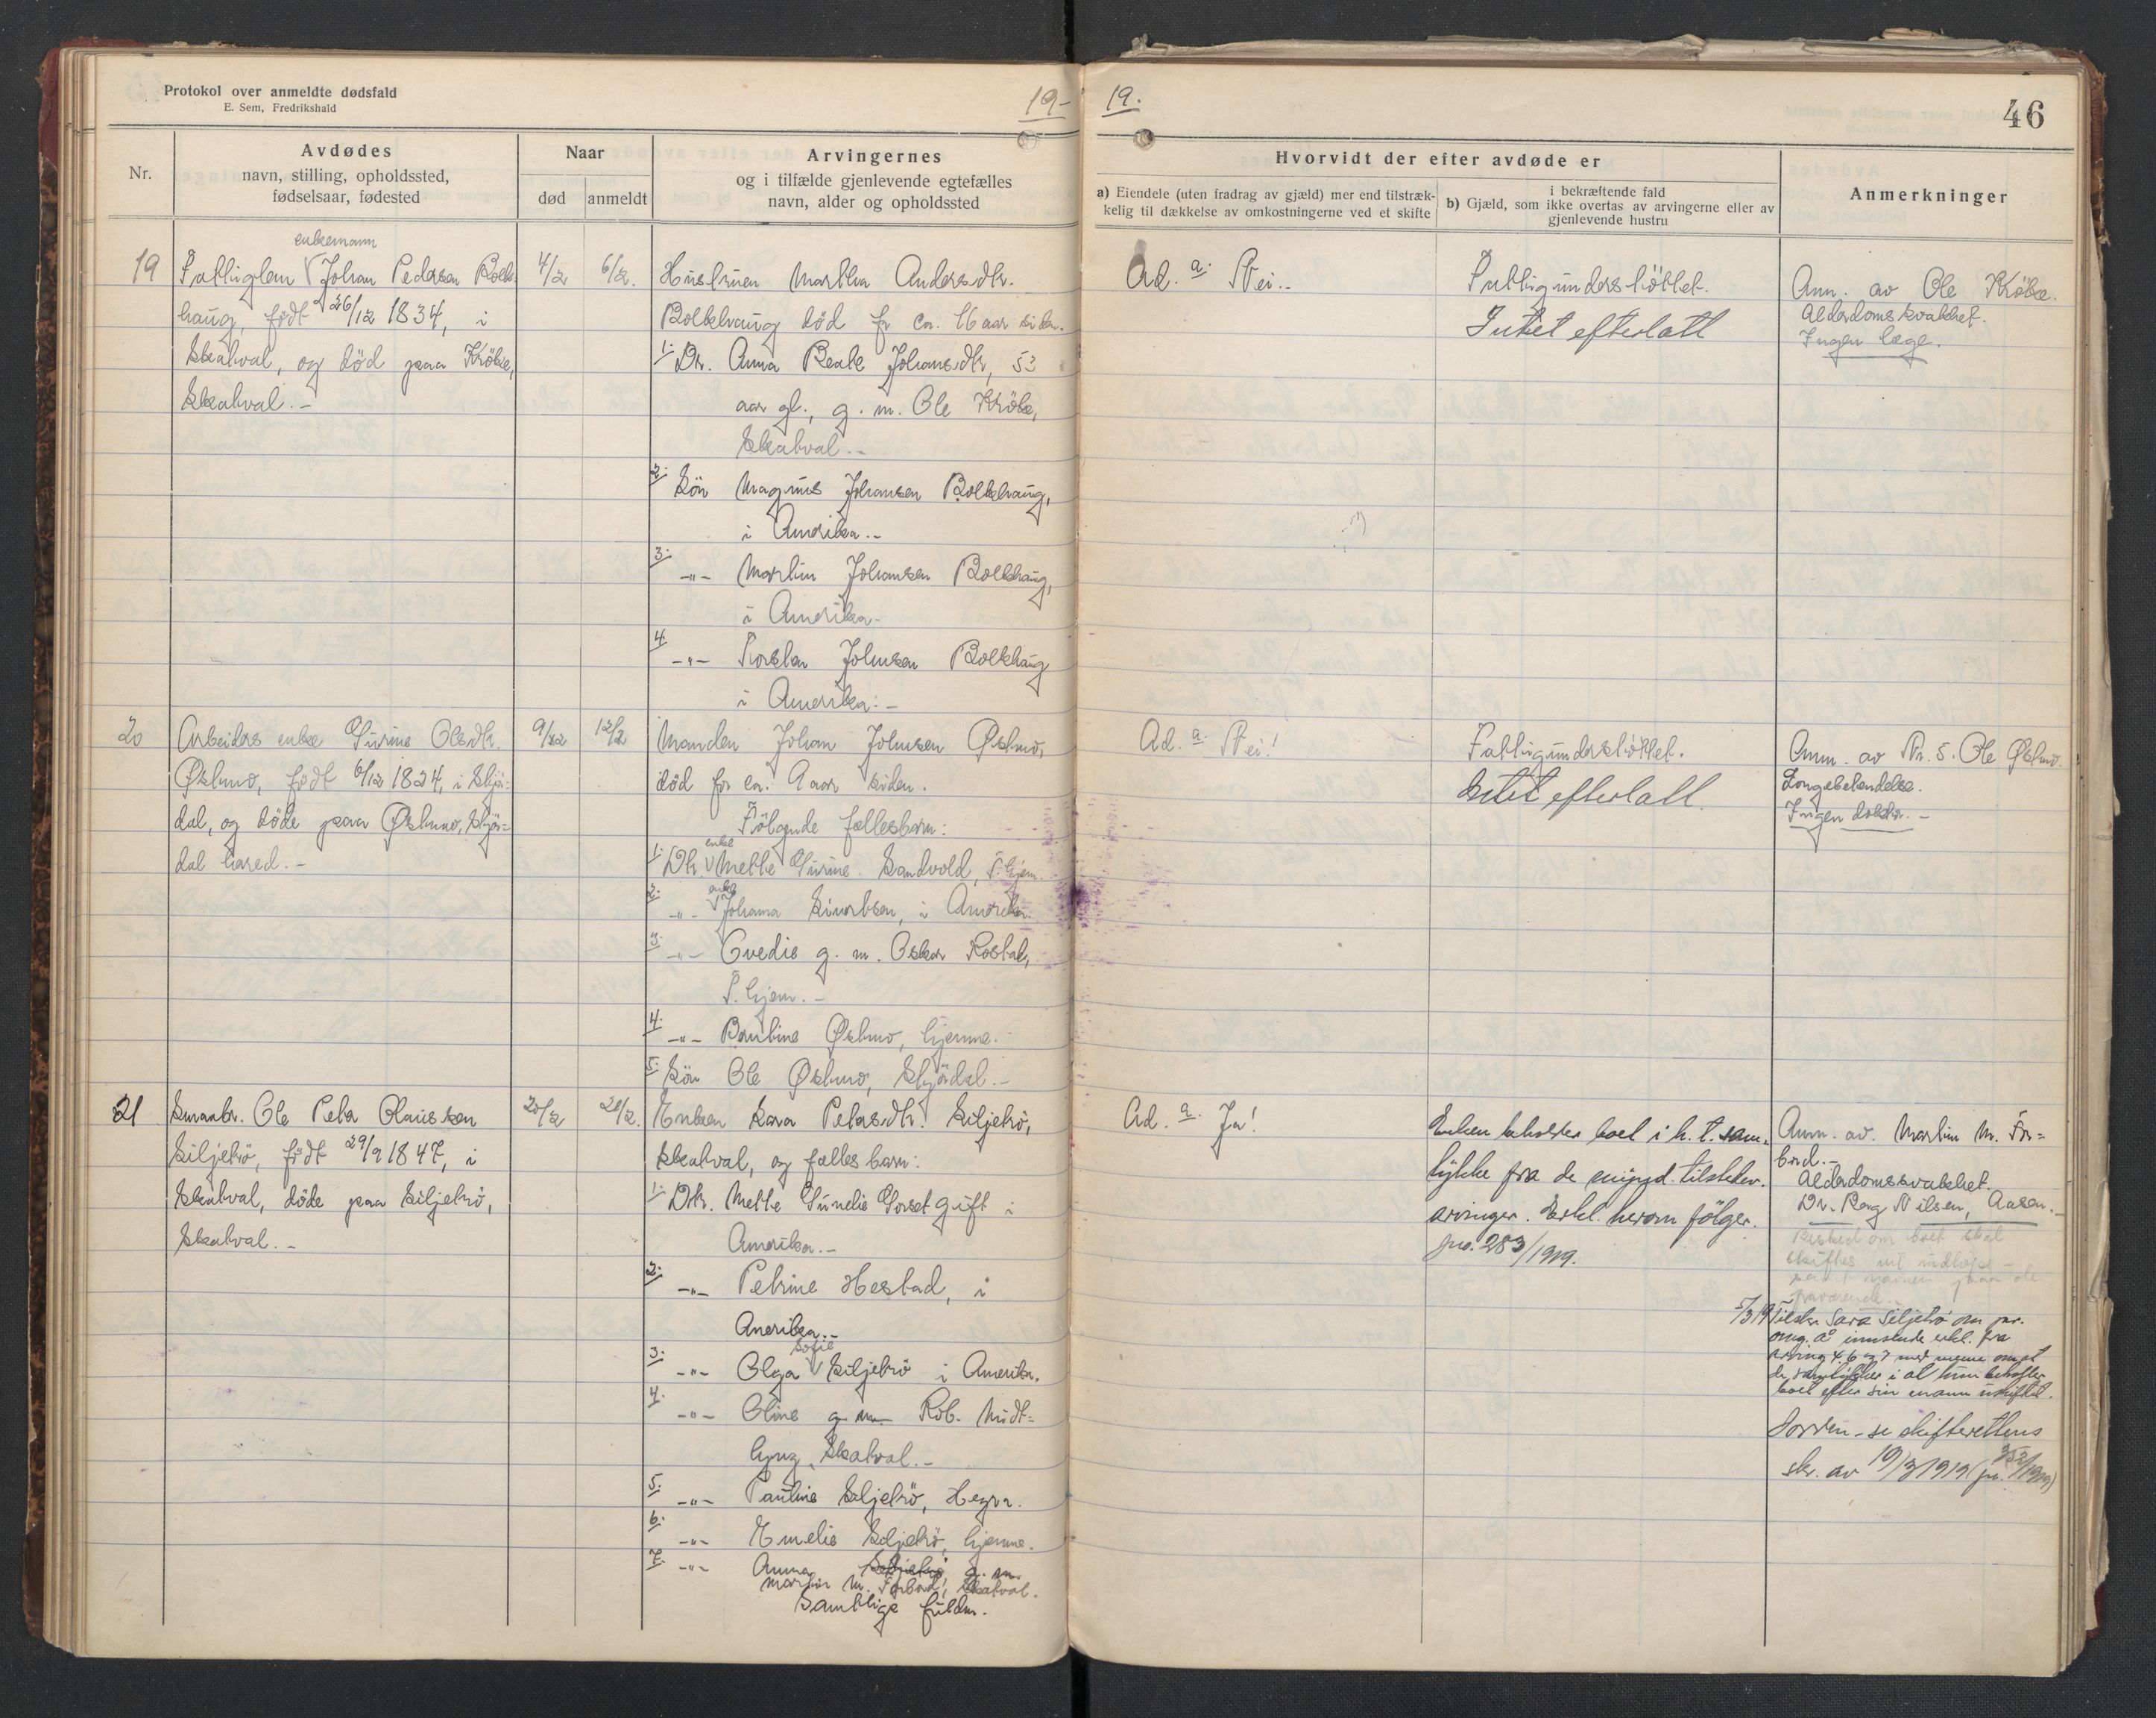 Protokol over anmeldte dødsfald
E. Sem, Fredrikshald
19-
19.
46
Nr.
Avdødes
navn, stilling, opholdssted,
fødselsaar, fødested
Naar
død
anmeldt
Arvingernes
og i tilfælde gjenlevende egtefælles
navn, alder og opholdssted
Hvorvidt der efter avdøde er
a) Eiendele (uten fradrag av gjæld) mer end tilstræk-
kelig til dækkelse av omkostningerne ved et skifte
i bekræftende fald
b) Gjæld, som ikke overtas av arvingerne eller av
gjenlevende hustru
Anmerkninger
19
enkemann
Fattiglem V Johan Pedersen Bolk-
haug, født 26/12 1834, i
Skatval, og död paa Kröke,
Skatval.-
4/2
6/2.
Hustruen Martha Andersdtr.
Bolkhaug död for ca. 16 aar siden.
1. Dtr. Anna Beate Johansdtr, 53
aar gl., g. m. Ole Kröke,
Skatval.-
2. Sön Magnus Johansen Bolkhaug,
i Amerika.-
3. -"- Martin Johansen Bolkhaug,
i Amerika.-
4. -"- Torsten Johnsen Bolkhaug
i Amerika.-
Ad. a. Nei.-
Fattigunderstöttet.
Intet efterlatt
Anm. av Ole Kröke.
Alderdomssvakhet.
Ingen læge.
20
Arbeiders enke Gurine Olsdtr.
Østmo, født 6/12 1834, i Stjør-
dal, og döde paa Østmo, Stjør-
dal hered.-
9/22
12/2
Manden Johan Johnsen Østmo,
död for ca. 9 aar siden.
Følgende fællesbarn:
enke
1. Dtr. V Mette Gurine Sandvold, T.hjem.
enke
2. -"- V Johanna Sivertsen, i Amerika.
3. -"- Ovedie g. m. Oskar Rostad,
T. hjem.-
4. -"- Berntine Østmo, hjemme.-
5. Sön Ole Østmo, Stjørdal.-
Ad. a. Nei!
Fattigunderstöttet.
Intet efterlatt.
Anm. av Nr. 5. Ole Østmo.
Lungebetændelse.
Ingen doktor.-
21
Smaabr. Ole Peter Olaussen
Siljetrö, født 29/9 1847, i
Skatval, döde paa Siljetrö,
Skatval.-
20/2
21/2.
Enken Sara Petersdtr. Siljetrö,
Skatval, og fælles barn:
1. Dtr. Mette Gunelie Forset gift i
Amerika.-
2. -"- Petrine Hestad, i
Amerika.-
Sofie
3. -"- Olga V Siljetrö i Amerika.
4. -"- Oline g. m. Rob. Midt-
lyng, Skatval.-
5. -"- Pauline Siljetrö, Hegra.
6. -"- Emelie Siljetrö, hjemme.
7. -"- Anna Siljetrö g. m.
Martin M. Forbord, Skatval.
Samtlige fuldm.
Ad. a. Ja!
Enken beholder boet i h. t. sam-
tykke fra de mynd. tilstedev.
arvinger. Erkl. herom følger.
jno. 283/1919.
Anm. av. Martin M. For-
bord.-
Alderdomssvakhet.
Dr. Roag Nilsen, Aasen.-
Besked om boet skal
skiftes vil indløpe -
5/3 19 Tilskr. Sara Siljetrö om per.
omg. å innsende erkl. fra
arving 4, 6 og 7 med mere om at
de samtykker i at hun beholder
boet efter sin mann uskiftet.
Sorren - se skifterettens
skr. av 19/3 1919 (jn. 352/1919)